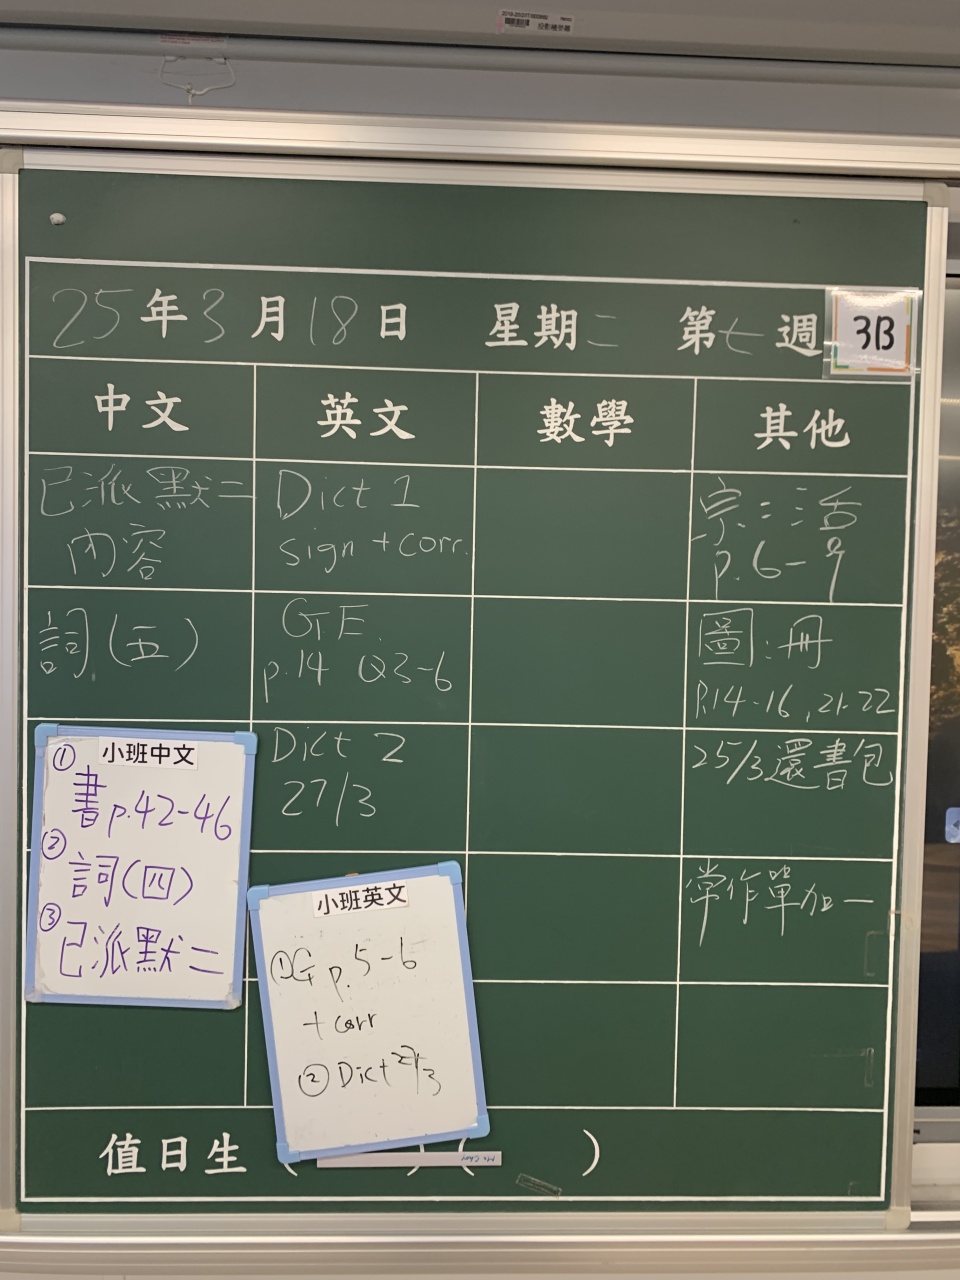 25年3月18日 星期二 第七週 3B
中文 英文 數學 其他
已派默二
內容
Dict 1
sign + corr.
宗：活
p.6-9
詞(五)
G.E.
p.14 Q3-6
圖：冊
P.14-16, 21-22
Dict 2
27/3
25/3還書包
常作單加一
小班中文
① 書p.42-46
② 詞(四)
③ 已派默二
小班英文
① G p. 5-6
+ corr
② Dict 27/3
值日生 ( ) ( )